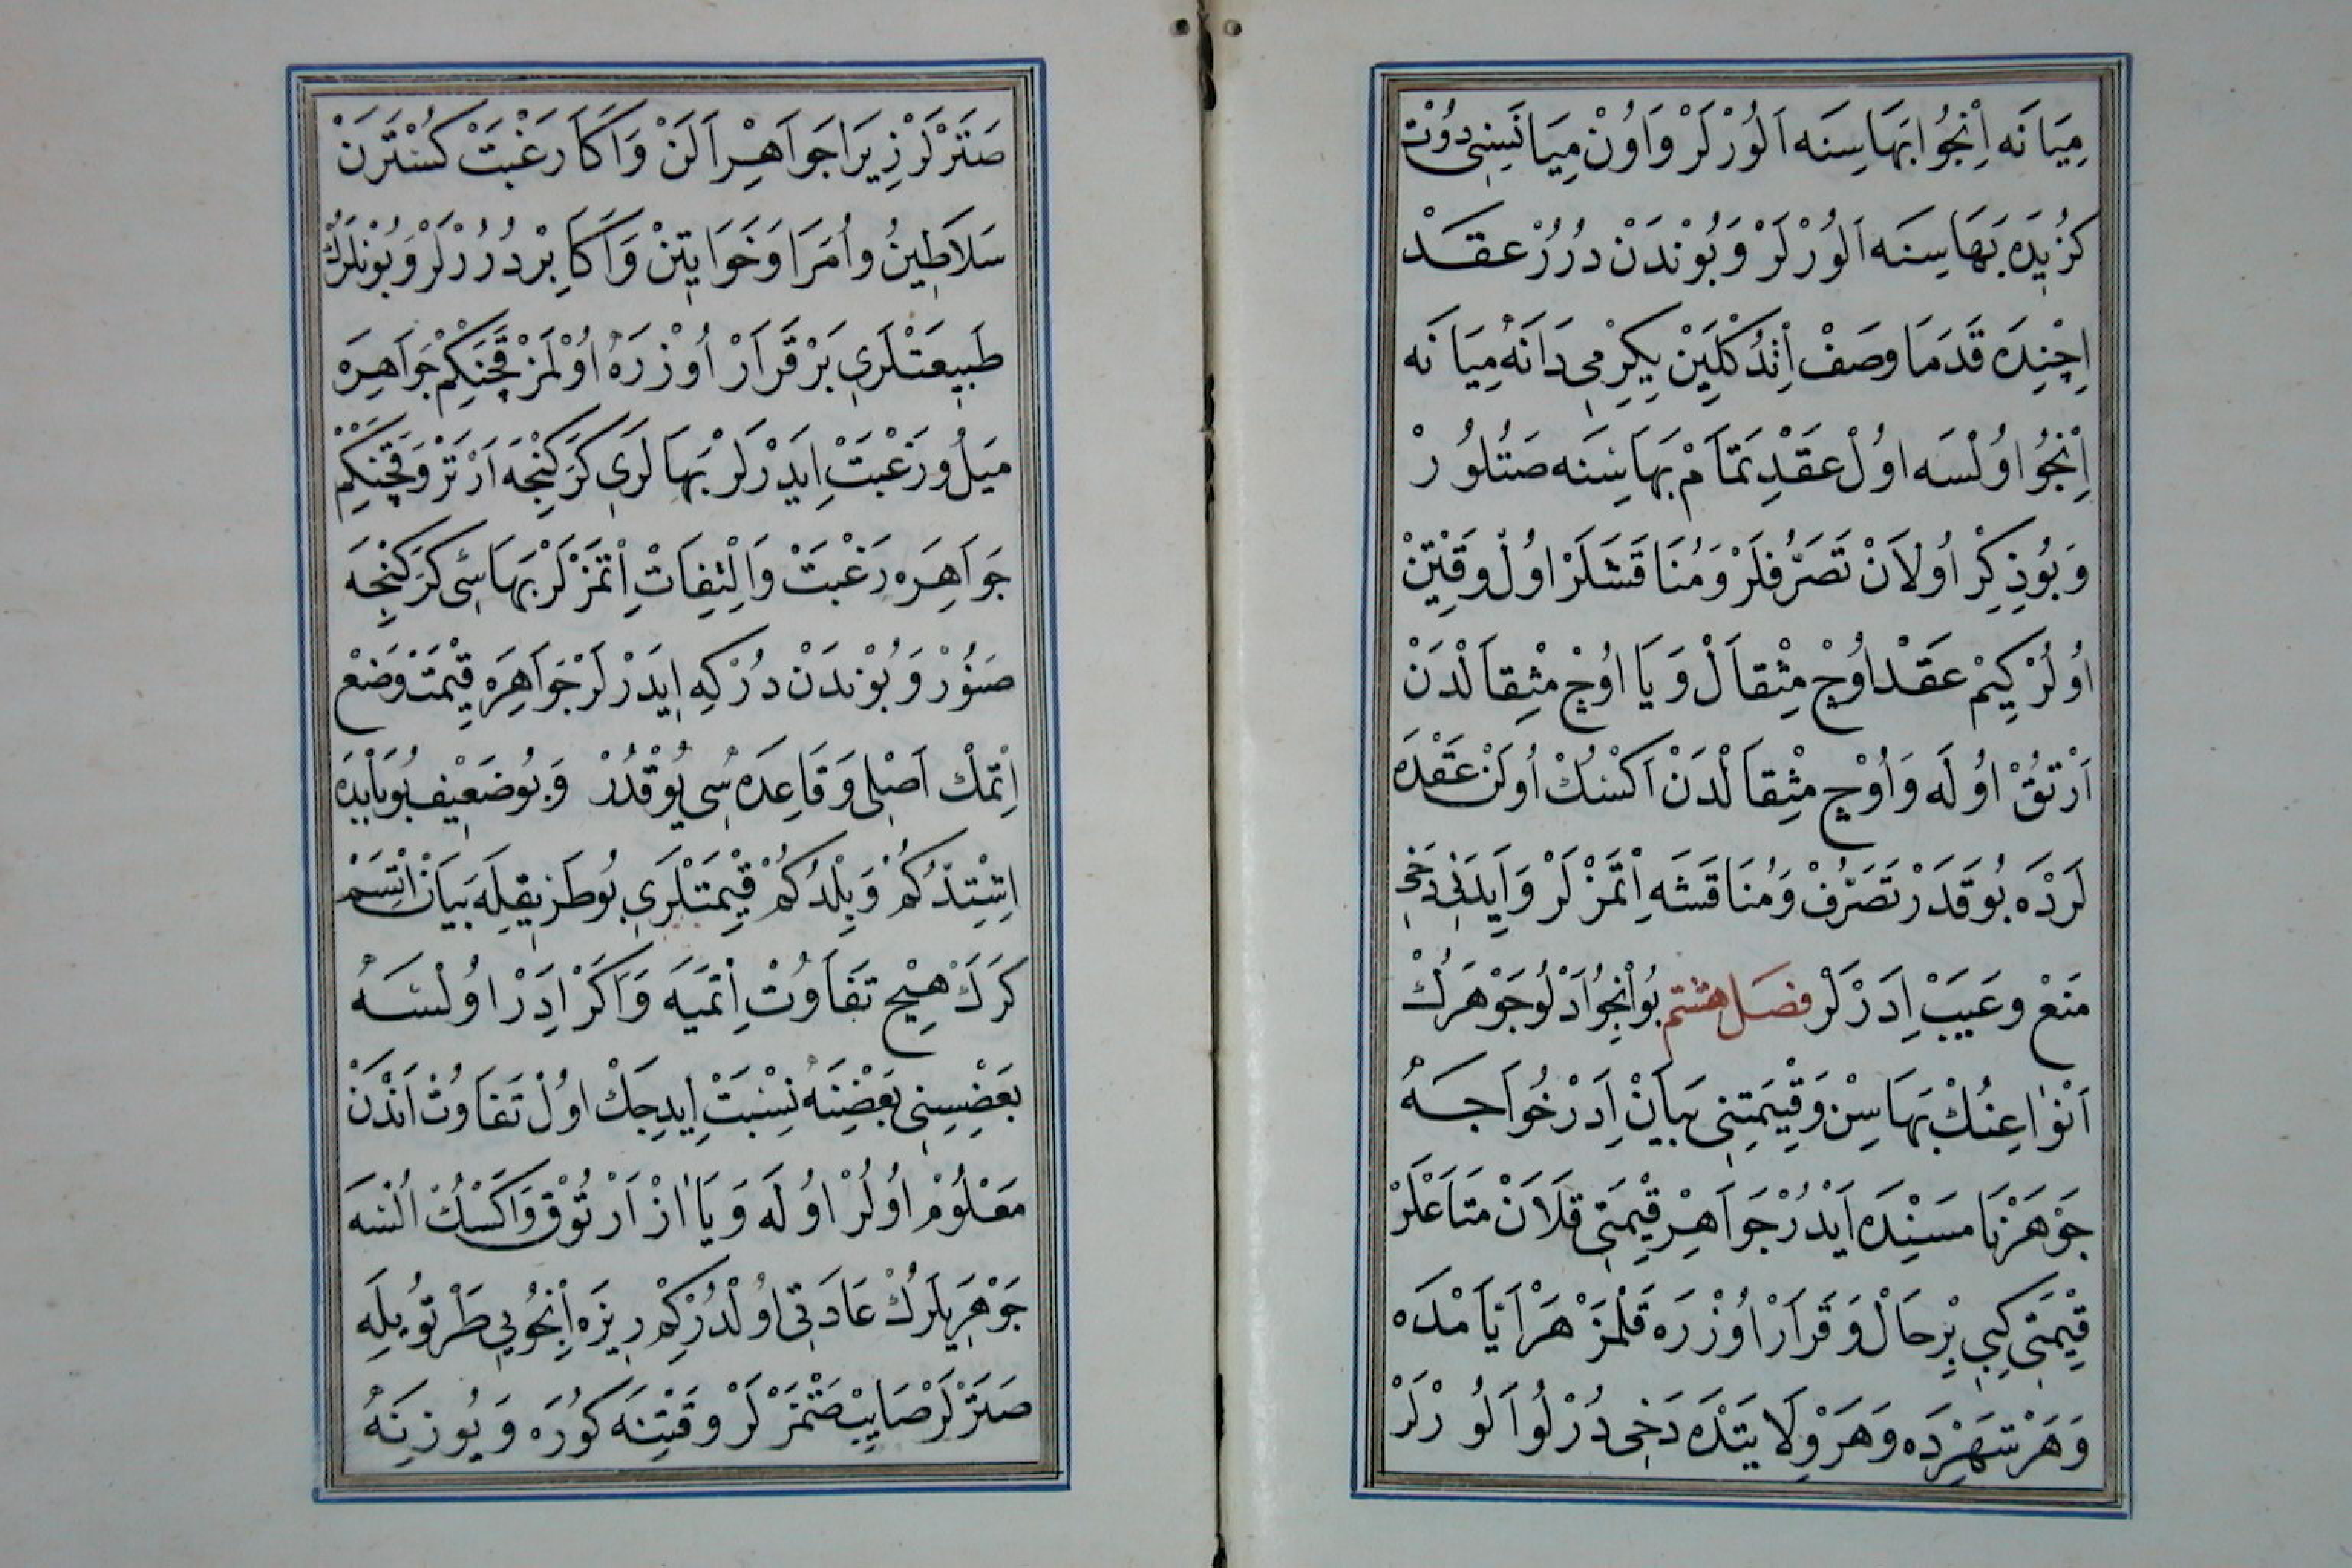 مِيَانَه اِنْجُوا بَهَاسِنَه اَلُوْرْلَرْ وَاُونْ مِيَانَسِنِى دُوْتْ
كُزِيدَه بَهَاسِنَه اَلُوْرْلَرْ وَبُوْندَنْ دُرُرْ عقَدْ
اِچِنِدَه قَدَمَا وصَفْ اِتْدُكْلَيِنْ يِكِرْمِى دَانَهْ مِيَانَه
اِنْجُوْ اوُلْسَه اوُلْ عقَدِ تَمَامْ بَهَاسِنَه صَتُلوُرْ
وَبُوذِكِرْ اوُلاَنْ تَصَرُّفلَرْ وَمُنَاقَشَلَرْ اوُلْ وقَتِنْ
اوُلُرْكِيمْ عَقَدْ اوُچْ مِثْقاَلْ وَيَا اوُچْ مِثِقاَلْدَنْ
اَرْتُقْ اوُلَه وَاُوْچ مِثِقاَلْدَنْ اَكْسُكْ اوُلَنْ عَقْدَه
لَرْدَه بُوقَدَرْ تَصَرُّفْ وَمُنَاقَشَه اِتْمَزْلَرْ وَاِيدَنِى دَخِى
مَنَعْ وعَيَبْ اِدَرْلَرْ فصَل هشتم بُوانْجُو اَدْلُو جَوْهَرُكْ
اَنْوٰاعِنُكْ بَهَاسِنْ وَقِيمَتِنِى بَيَانْ اِدَرْ خُواَجَهْ
جَوْهَرْنَامَسَنِدَه اَيْدُرْ جَوَاهِرْ قِيْمَتِى قلَانْ مَتَاعْلَرْ
قِيْمَتِى كِبِى بِرْحَالْ وَقَرَارْ اوُزْرَه قَلْمَزْ هَرْ اَيَّامْدَه
وَهَرْشَهِرْدَه وَهَرْوِلَايَتْدَه دَخِى دُرْلُو اَلوُرْلَرْ
صَتَرْلَرْ زِيرَا جَوَاهِرْ اَلَنْ وَاَكَا رَغْبَتْ كُسْتَرَنْ
سَلاَطِينُ واُمَرَا وَخَوَاتِينْ وَاَكَابِرْ دُرُرْلَرْ وَبُوْنلَرُكْ
طَبِيعَتْلَرِى بَرْقَرَارْ اُوزْرَهْ اوُلْمَزْ قَچَنكِمْ جَوَاهِرَه
مَيَلُ ورَغْبَتْ اِيَدْرْلَرْ بَهَالَرِى كَرَكِنْجَه اَرْتَرْ وَقَچَنكِمْ
جَوَاهِرَه رَغْبَتْ وَالْتِفَاتْ اِتْمَزْلَرْ بَهَاسِى كَرَكِنْجِه
صنُوْرْ وَبُوْندَنْ دُرْكِه اِيدَرْلَرْ جَوَاهِرَه قِيْمَتْ وَضَعْ
اِتْمَكْ اَصْلِى وَقَاعِدَه سِى يُوقْدُرْ وَبُوضَعِيْف بُوبَابْدَه
اِشِتِدُّكُمْ وَبِلْدُكُمْ قِيْمَتْلَرِى بُوطَرِيقِلَه بَيَانْ اِتْسَمْ
كَرَكْ هِيچ تَفَاوُتْ اِتْمَيَه وَاَكَرْ اِدَرْ اوُلْسَهْ
بَعْضِسِنِى بَعْضِنَهْ نِسْبَتْ اِيدِجَكْ اوُلْ تَفَاوُتْ اَنْدَنْ
مَعْلُوُمْ اوُلُرْ اوُلَه وَيَا اَزْ اَرْتُوقْ وَاَكْسُكْ اُلْسَه
جَوْهَرِيلَرُكْ عَادَتِى اوُلْدُرْكِمْ رِيزَه اِنْجُويِى طَرْتُوُيلَه
صَتَرْلَرْ صَايِيبْ صَتْمَزْلَرْ وقَتِنَه كُورَه وَيُوزِنَهْ